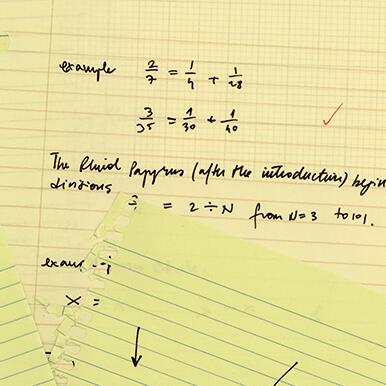 example 2/7 = 1/4 + 1/28
3/35 = 1/30 + 1/40
The Rhind Papyrus (after the introduction) begin
divisions = 2 ÷ N from N=3 to 101.
x =